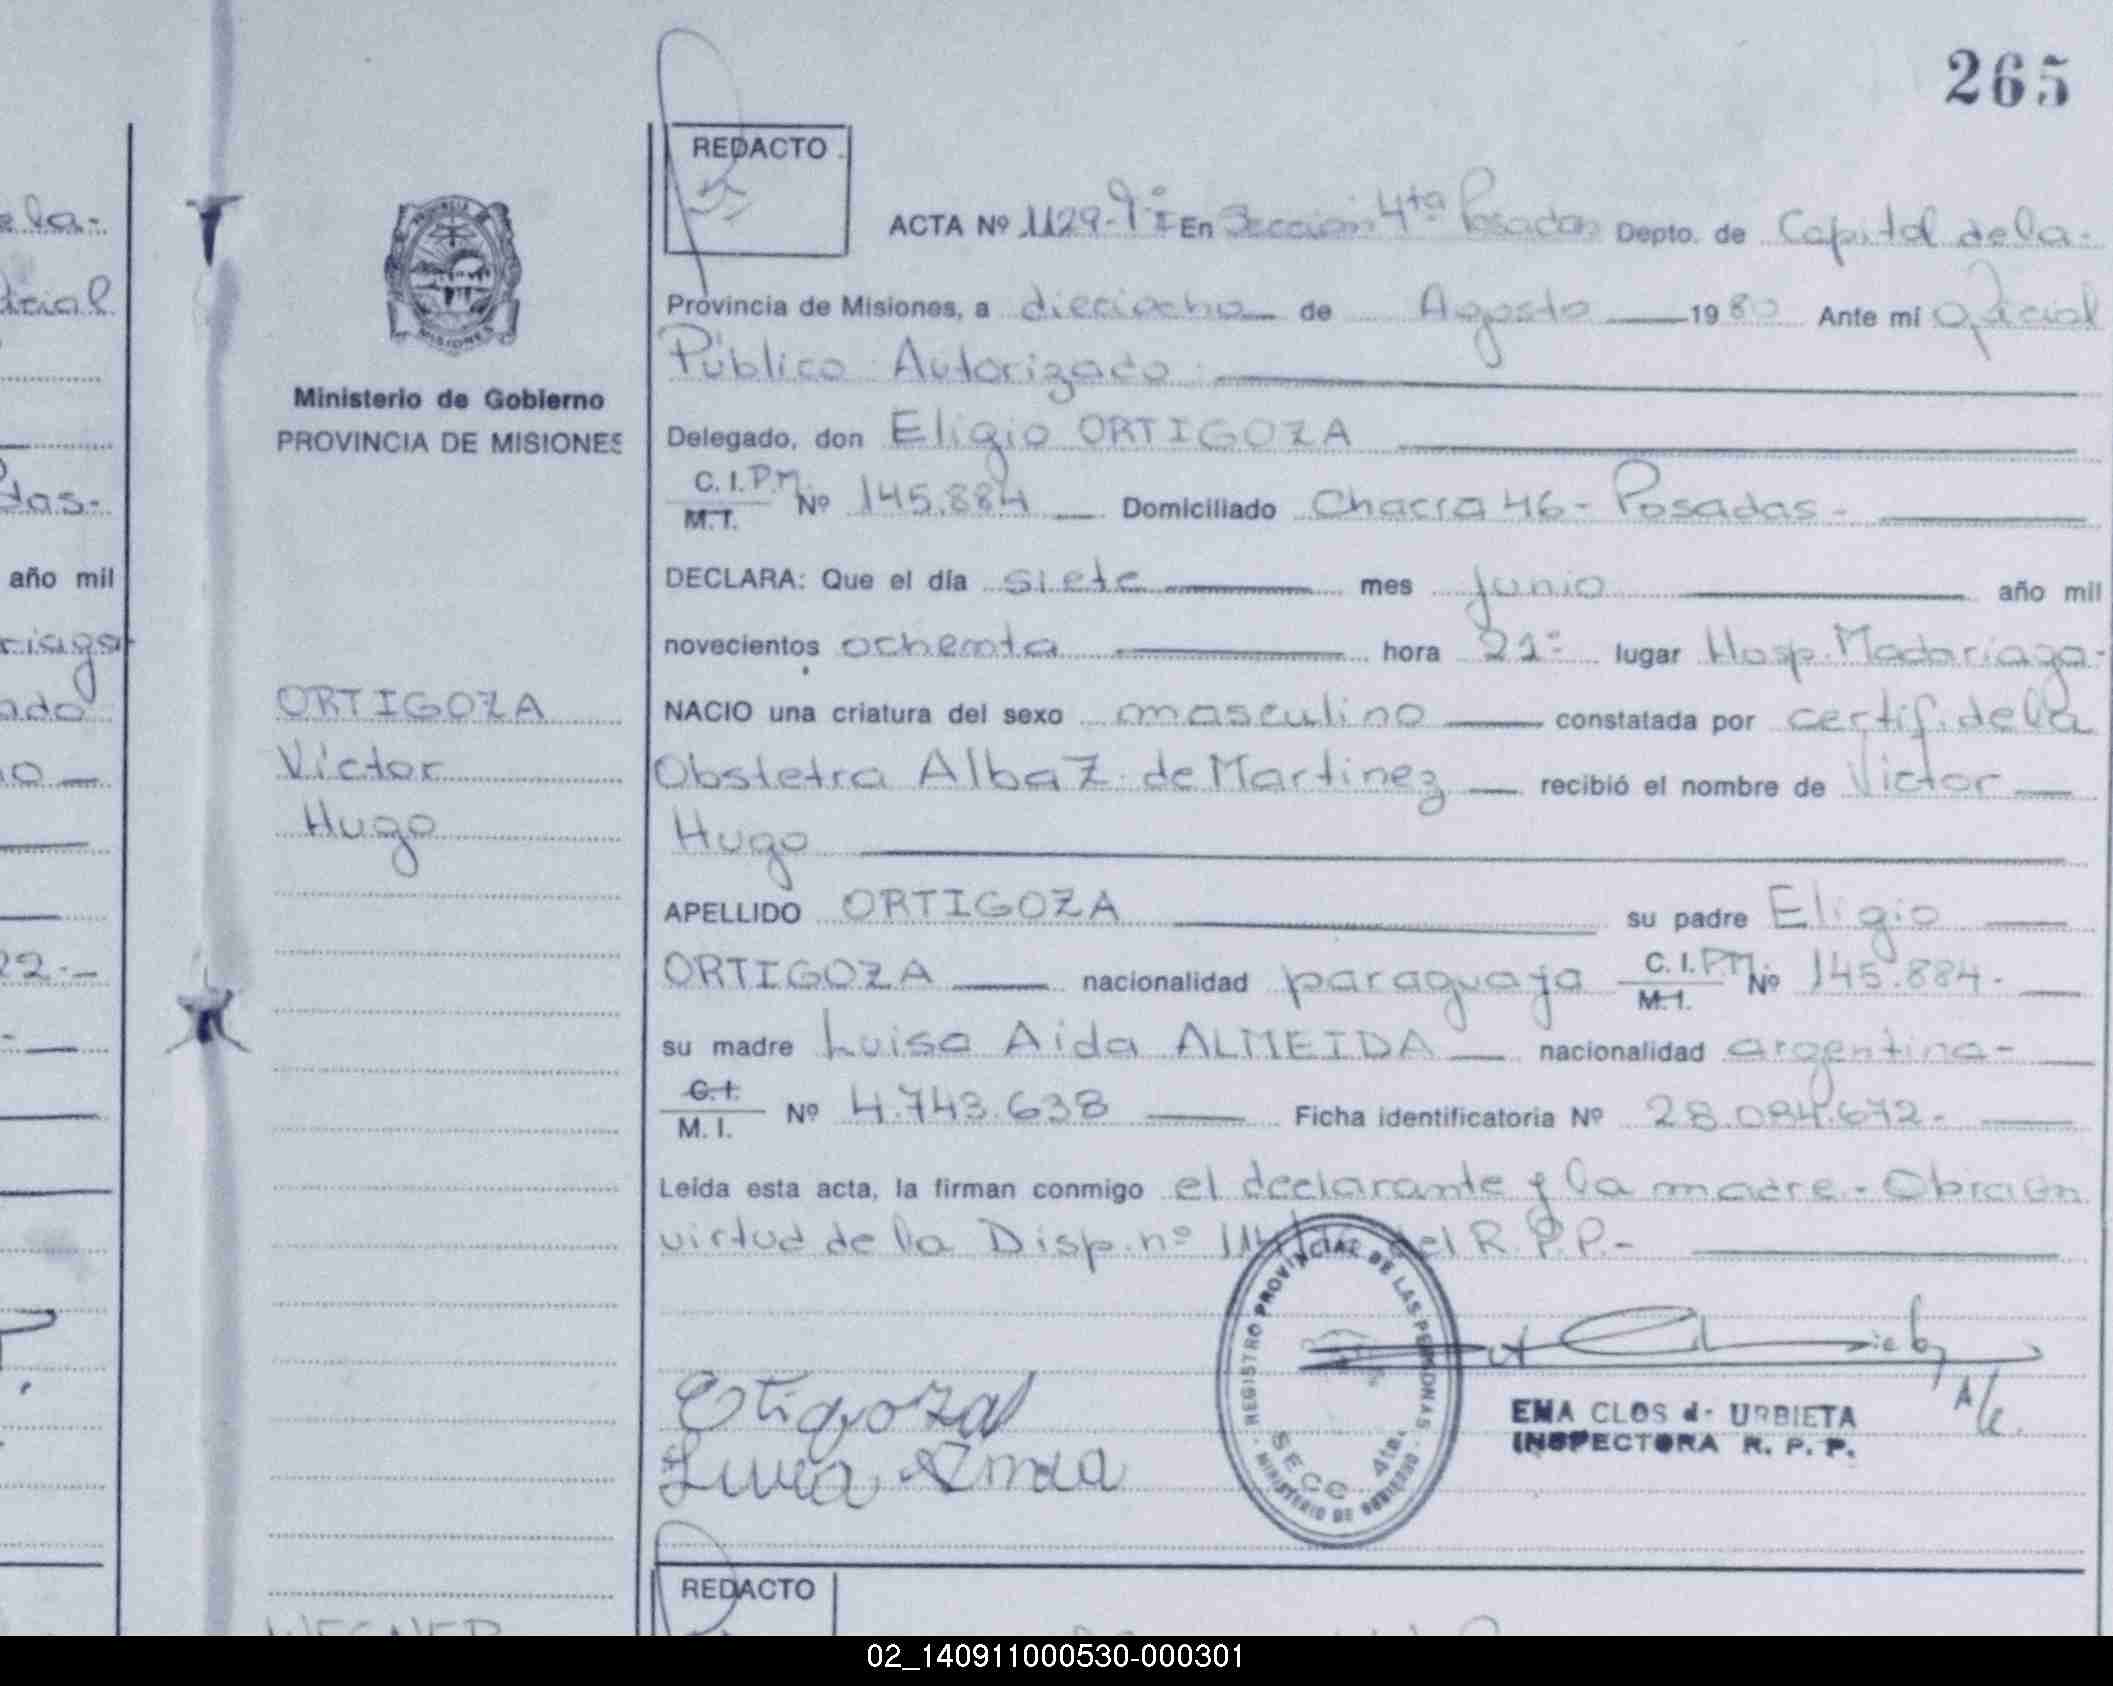 265
REDACTO
ACTA Nº 1129-Tº I En Sección 4ta Posadas Depto. de Capital de la-
Provincia de Misiones, a dieciocho de Agosto 1980 Ante mi Oficial
Público Autorizado
Delegado, don Eligio ORTIGOZA
C. I. P.M. M.I. Nº 145.884 Domiciliado Chacra 46- Posadas-
DECLARA: Que el día siete mes junio año mil
novecientos ochenta hora 21- lugar Hosp. Madariaga-
NACIO una criatura del sexo masculino constatada por certif. de la
Obstetra Alba Z. de Martinez recibió el nombre de Victor
Hugo
APELLIDO ORTIGOZA su padre Eligio
ORTIGOZA nacionalidad paraguaya C. I. P.M. M.I. Nº 145.884-
su madre Luisa Aida ALMEIDA nacionalidad argentina-
C.I. M. I. Nº 4.743.638 Ficha identificatoria Nº 28.084.672-
Leída esta acta, la firman conmigo el declarante y la madre.- Obra en
virtud de la Disp. nº del R.P.P.-
Ministerio de Gobierno
PROVINCIA DE MISIONES
ORTIGOZA
Victor
Hugo
PROVINCIA DE
MISIONES
REGISTRO PROVINCIAL DE LAS PERSONAS
SECC. 4ta.
MINISTERIO DE GOBIERNO
EMA CLOS d- URBIETA
INSPECTORA R. P. P.
REDACTO
WEGNER
e la-
icial
das-
año mil
riaga
ado
no
22.-
02_140911000530-000301